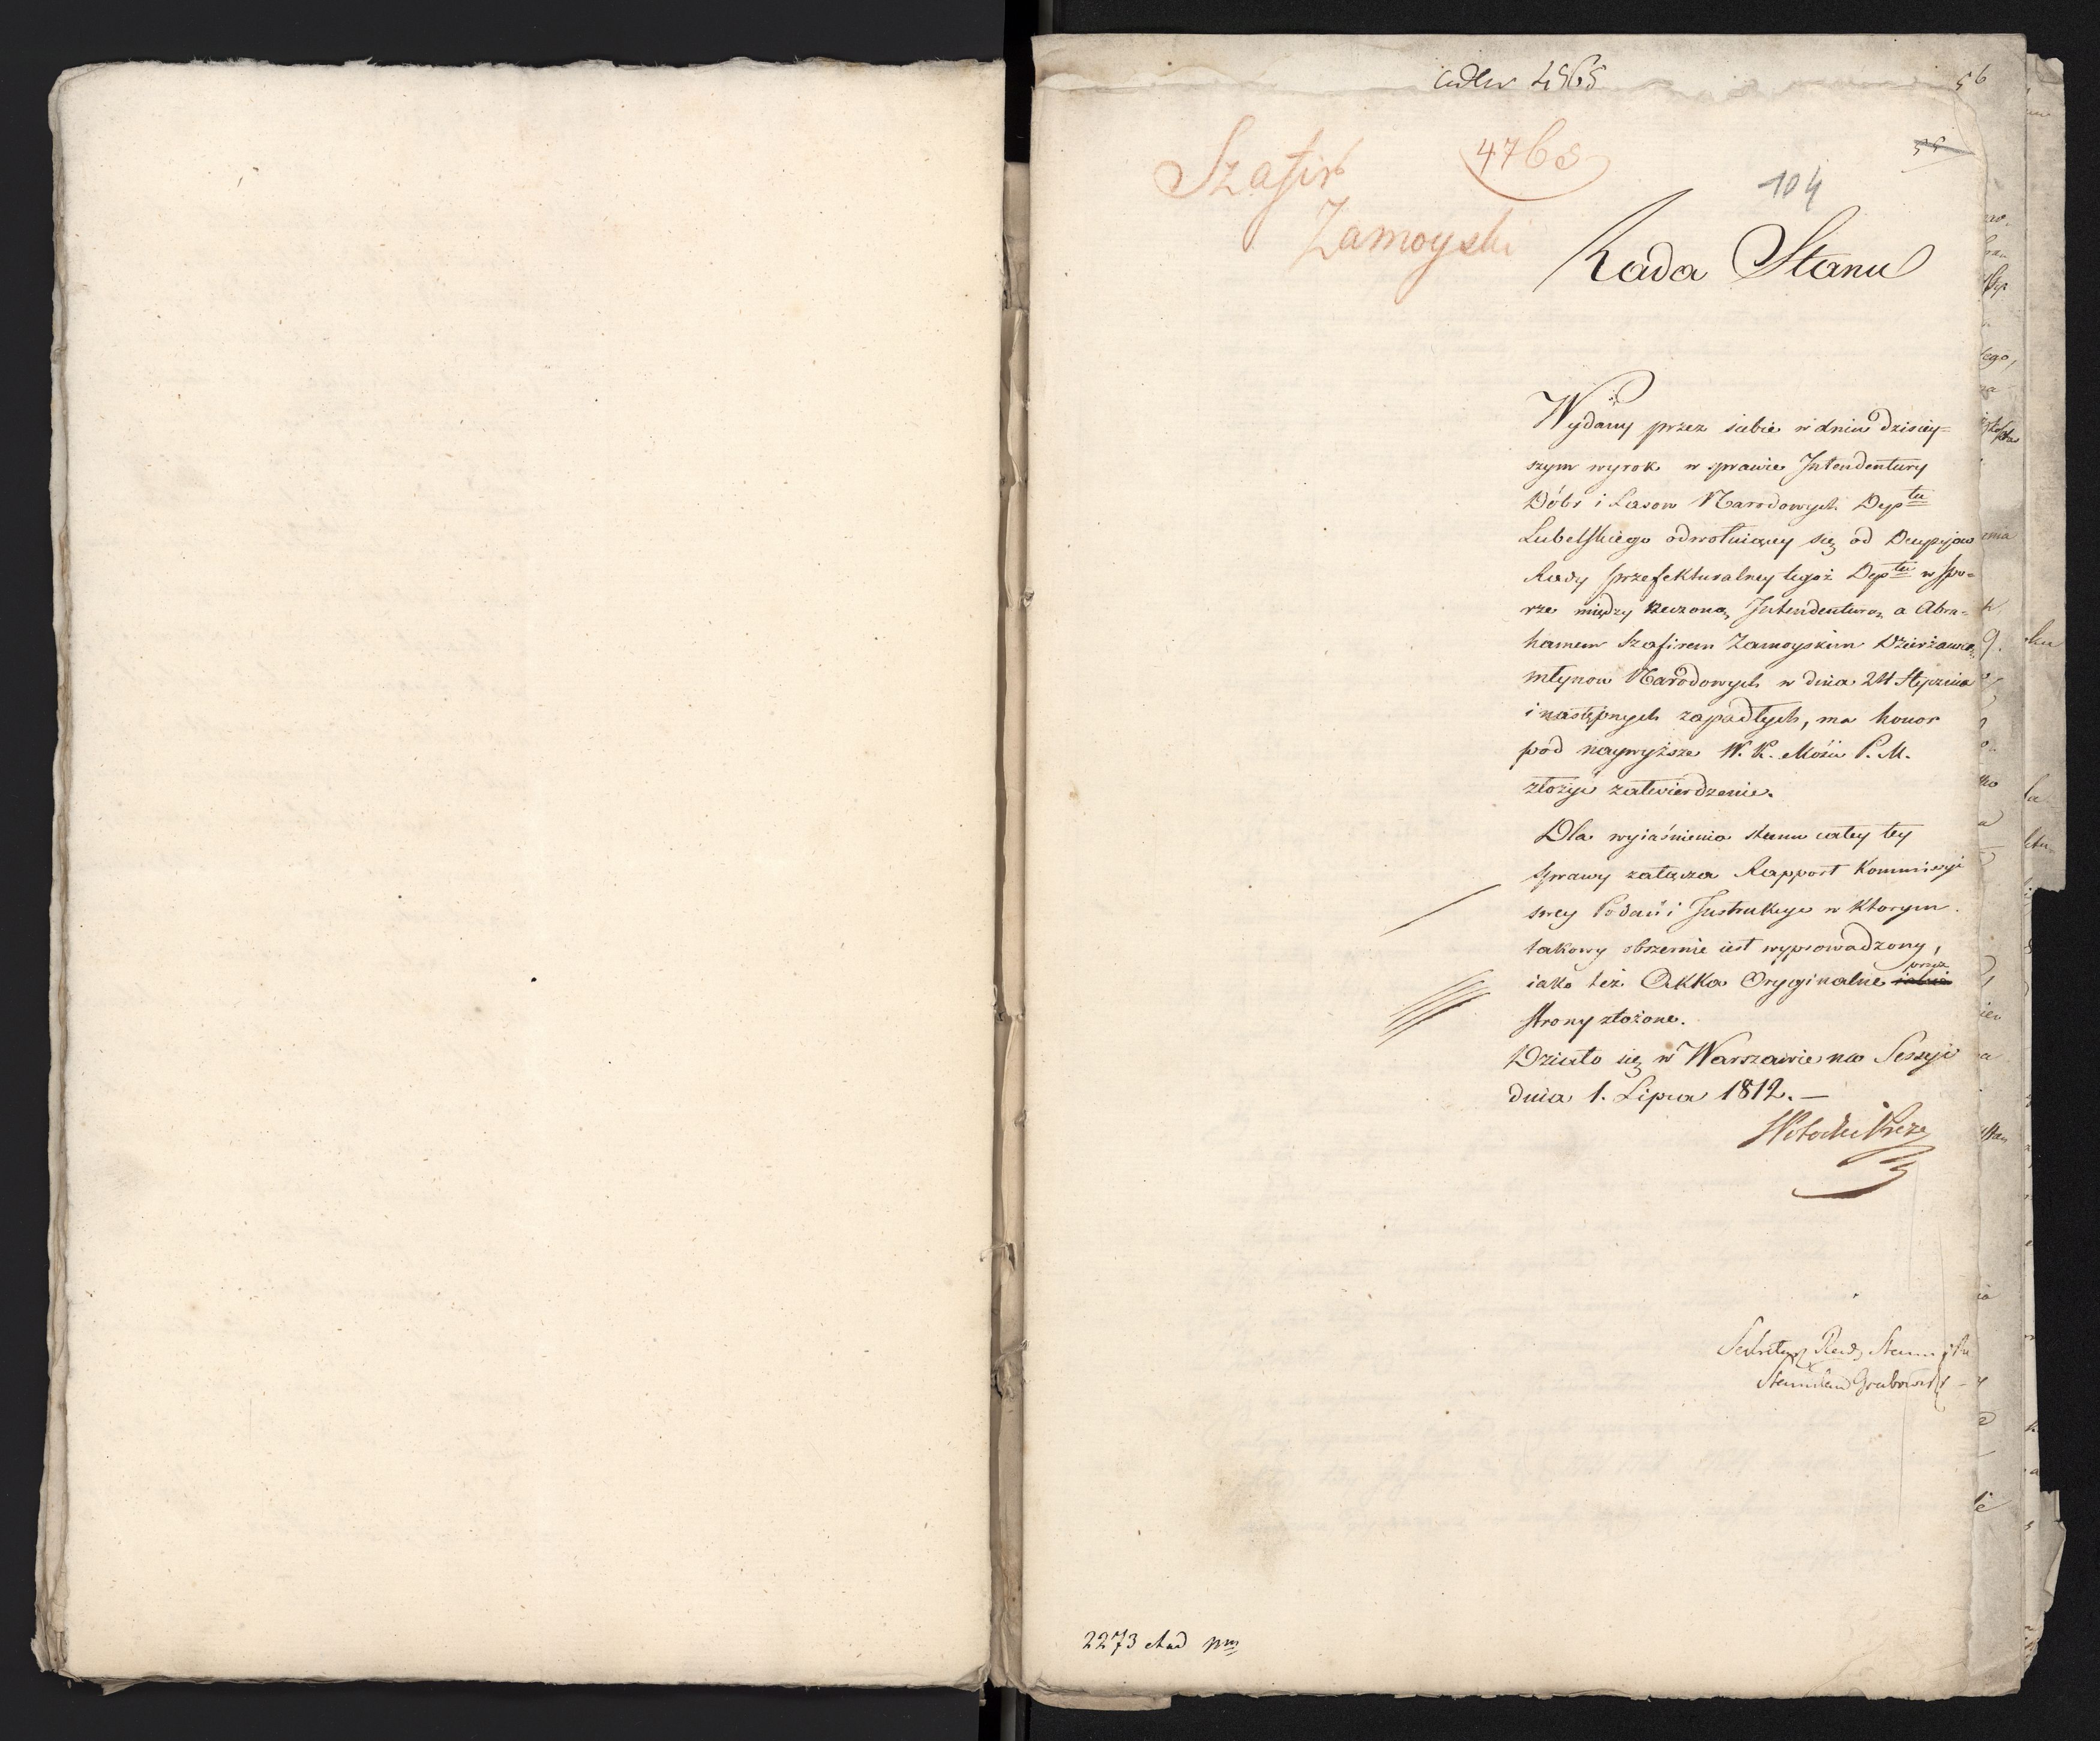 4565
56
55
Szafir 4765
104
Zamoyski
Rada Stanu
Wydany przez siebie w dniu dzisiey=
szym wyrok w sprawie Intendentury
Dóbr i Lasow Narodowych Dep^tu
Lubelskiego odwołuiącey się od Decyzyow
Rady Prefekturalney tegoż Dep^tu w spo=
rze między rzeczoną Intendenturą, a Abra=
hamem Szafirem Zamoyskim Dzierżawcą
młynow Narodowych w dniu 24 Stycznia
i następnych zapadłych, ma honor
pod naywyższe W. K. Mości P. M.
złożyć zatwierdzenie.
Dla wyiaśnienia stanu całey tey
sprawy załącza Rapport Kommissyi
swey Podań i Instrukcyi w ktorym
takowy obszernie iest wyprowadzony,
iako też Akta Oryginalne przez
strony złożone.
Działo się w Warszawie na Sessyi
dnia 1. Lipca 1812. —
Sekretarz Rady Stanu
Stanisław Grabowski
2273